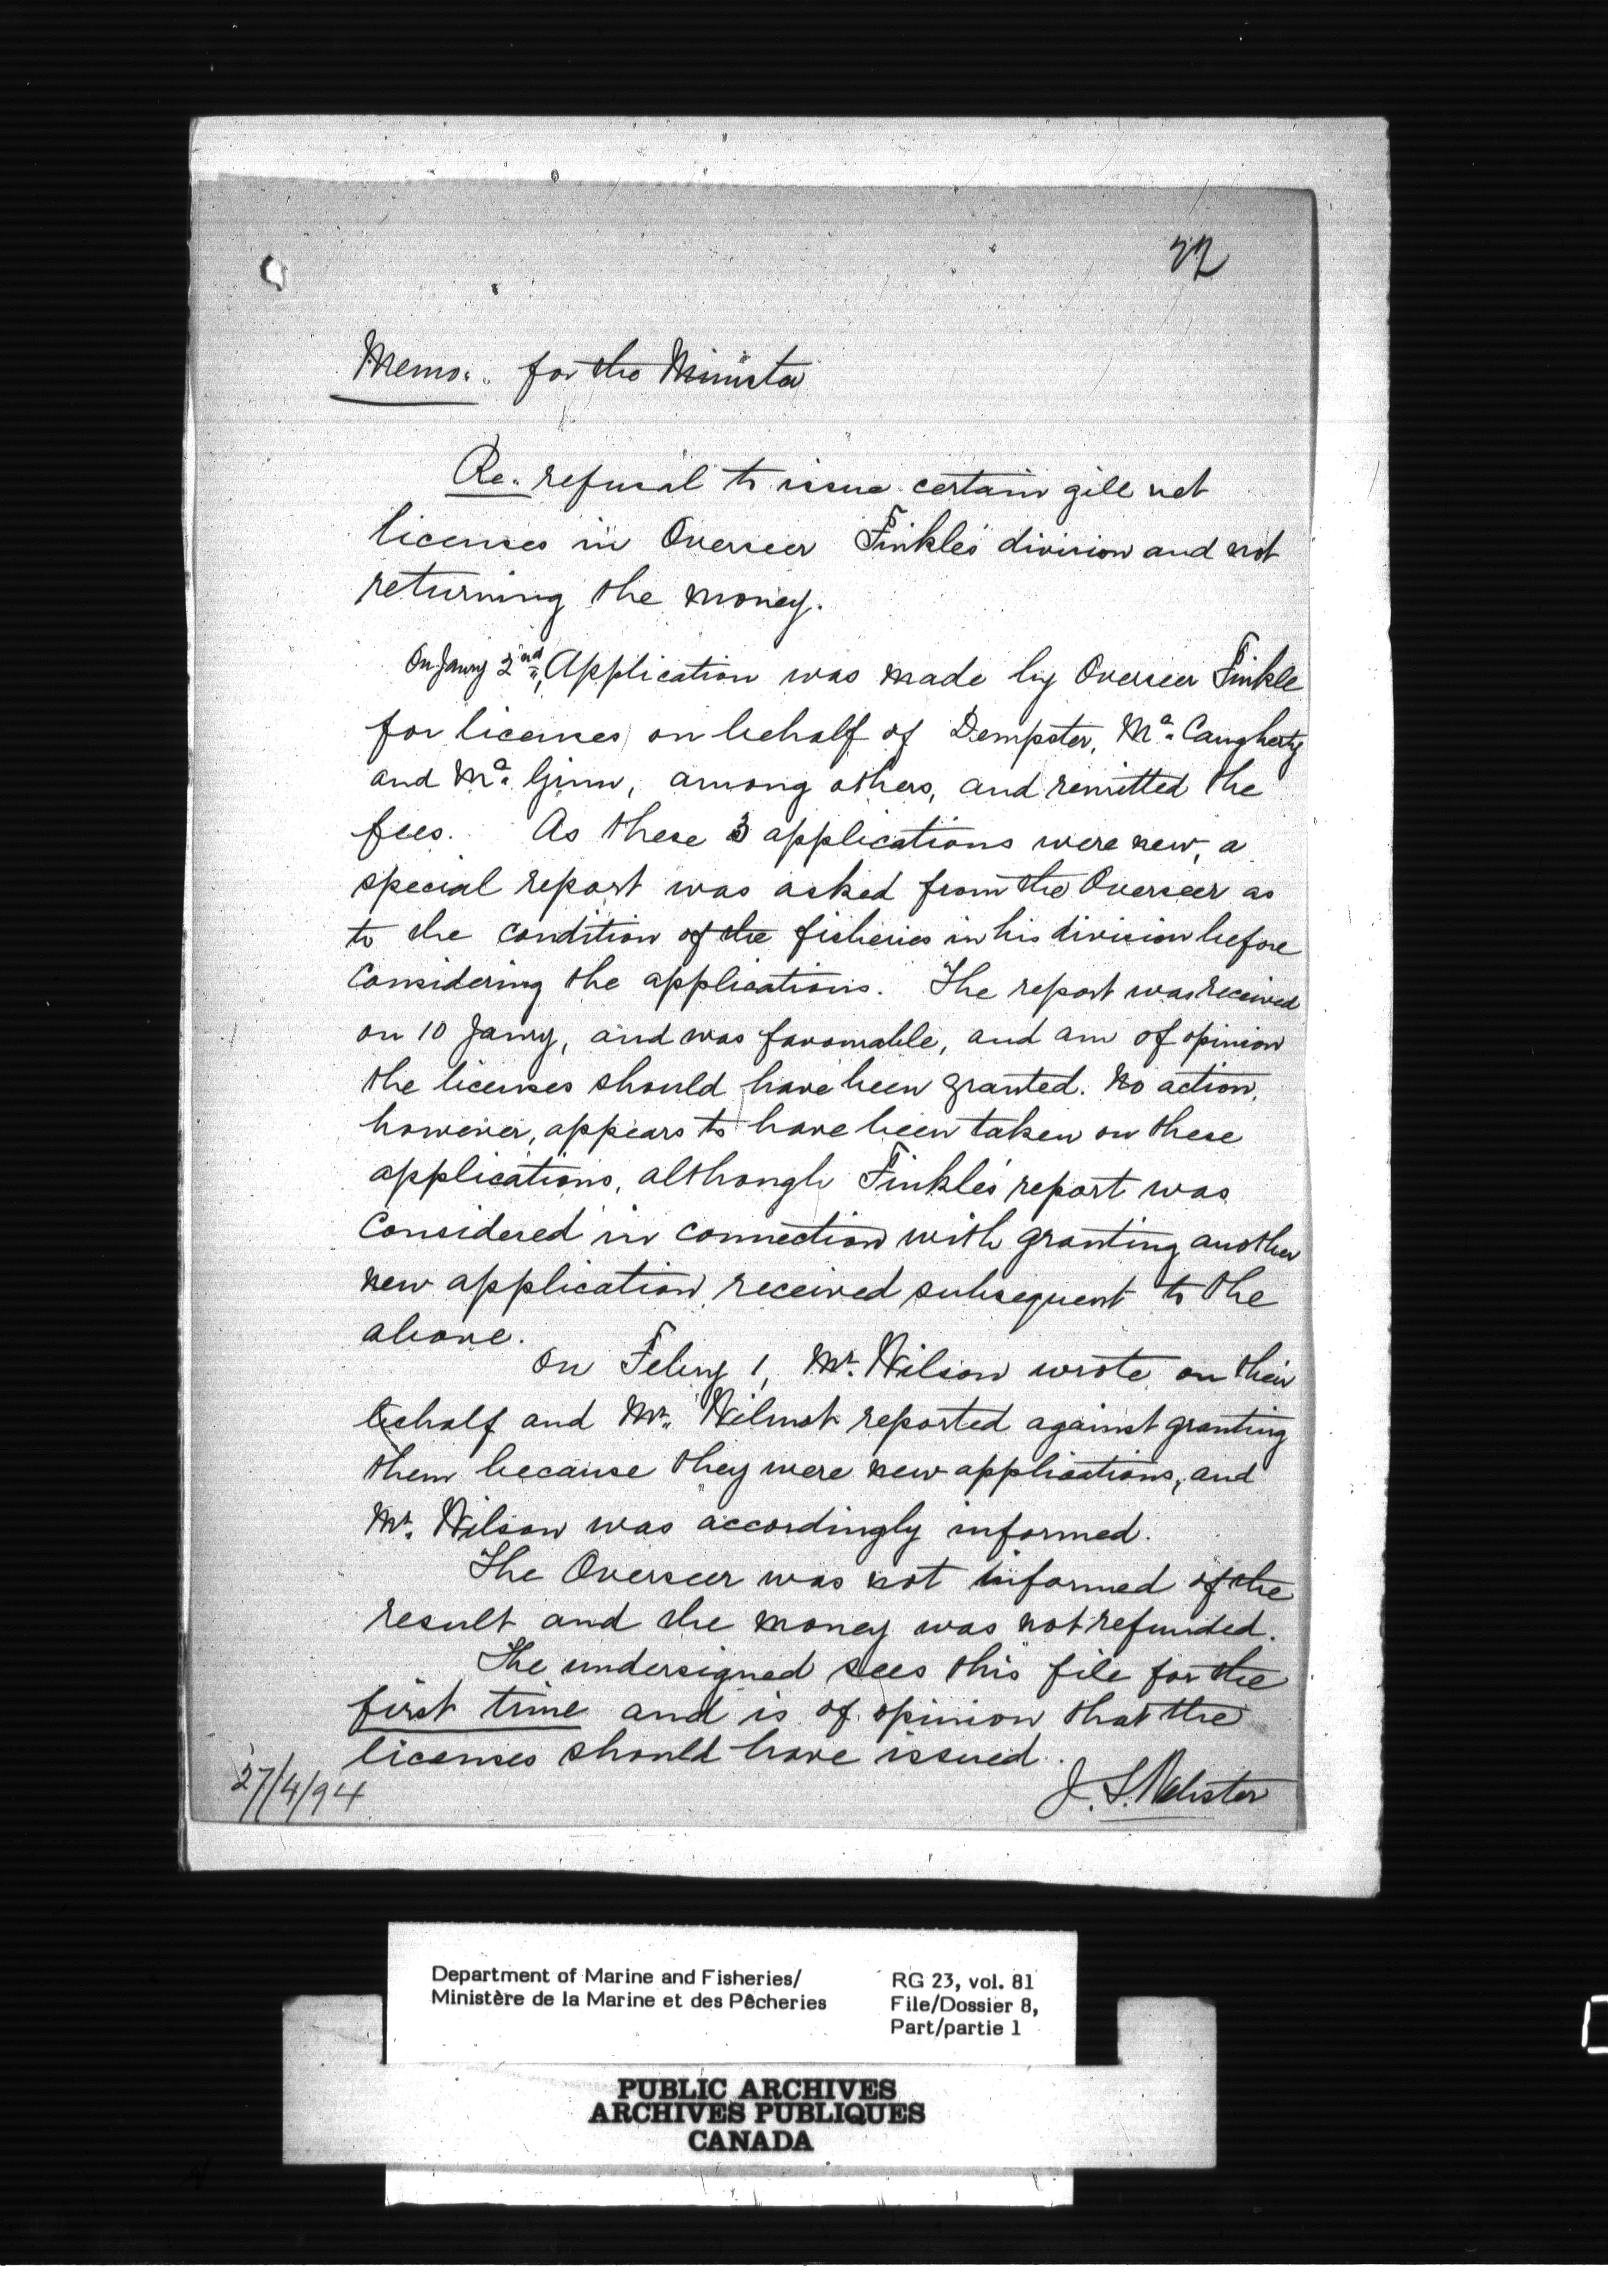 Memo. for the Minister
Re. refusal to issue certain gill net
licenses in Overseer Finkle's division and not
returning the money.
On Jany 2nd, Application was made by Overseer Finkle
for licenses on behalf of Dempster, Mc Caugherty
and Mc Ginn, among others, and remitted the
fees. As these 3 applications were new, a
special report was asked from the Overseer as
to the condition of the fisheries in his division before
considering the applications. The report was received
on 10 Jany, and was favourable, and am of opinion
the licenses should have been granted. No action,
however, appears to have been taken on these
applications, although Finkle's report was
considered in connection with granting another
new application received subsequent to the
above.
On Feby 1, Mr. Wilson wrote on their
behalf and Mr. Wilmot reported against granting
them because they were new applications, and
Mr. Wilson was accordingly informed.
The Overseer was not informed of the
result and the money was not refunded.
The undersigned sees this file for the
first time and is of opinion that the
licenses should have issued.
27/4/94
J. S. Webster
Department of Marine and Fisheries/
Ministère de la Marine et des Pêcheries
RG 23, vol. 81
File/Dossier 8,
Part/partie 1
PUBLIC ARCHIVES
ARCHIVES PUBLIQUES
CANADA